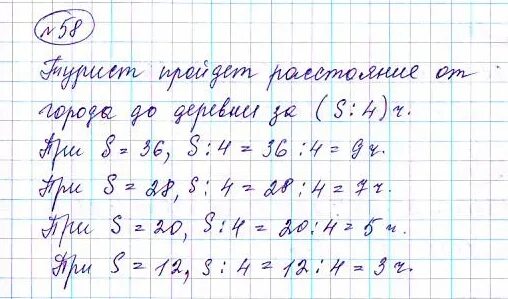 №58
Турист пройдет расстояние от
города до деревни за (S:4) ч.
При S = 36, S : 4 = 36 : 4 = 9 ч.
При S = 28, S : 4 = 28 : 4 = 7 ч.
При S = 20, S : 4 = 20 : 4 = 5 ч.
При S = 12, S : 4 = 12 : 4 = 3 ч.